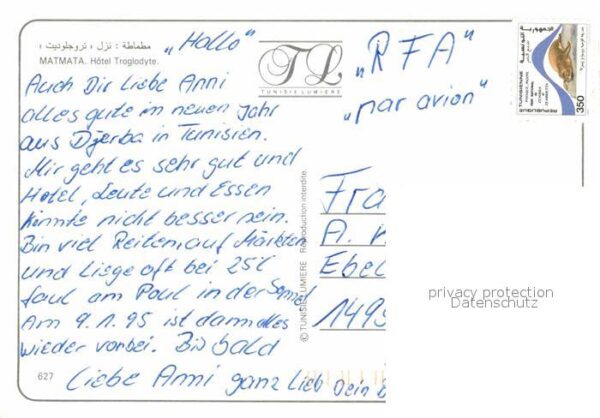 مطماطة : نزل ، تروجلوديت ،
MATMATA. Hôtel Troglodyte.
„Hallo"
TL
TUNISIE LUMIERE
„RFA"
„par avion"
350
Auch Dir liebe Anni
alles gute im neuen Jahr
aus Djerba in Tunisien.
Mir geht es sehr gut und
Hotel, Leute und Essen
könnte nicht besser sein.
Bin viel Reiten, auf Märkten
und Liege oft bei 25°C
faul am Poul in der Sonne!
Am 9.1.95 ist dann alles
wieder vorbei. Bis bald
Liebe Anni ganz Lieb Dein
© TUNISIE LUMIERE Reproduction interdite.
Fra
A.
Ebel
1495
privacy protection
Datenschutz
627